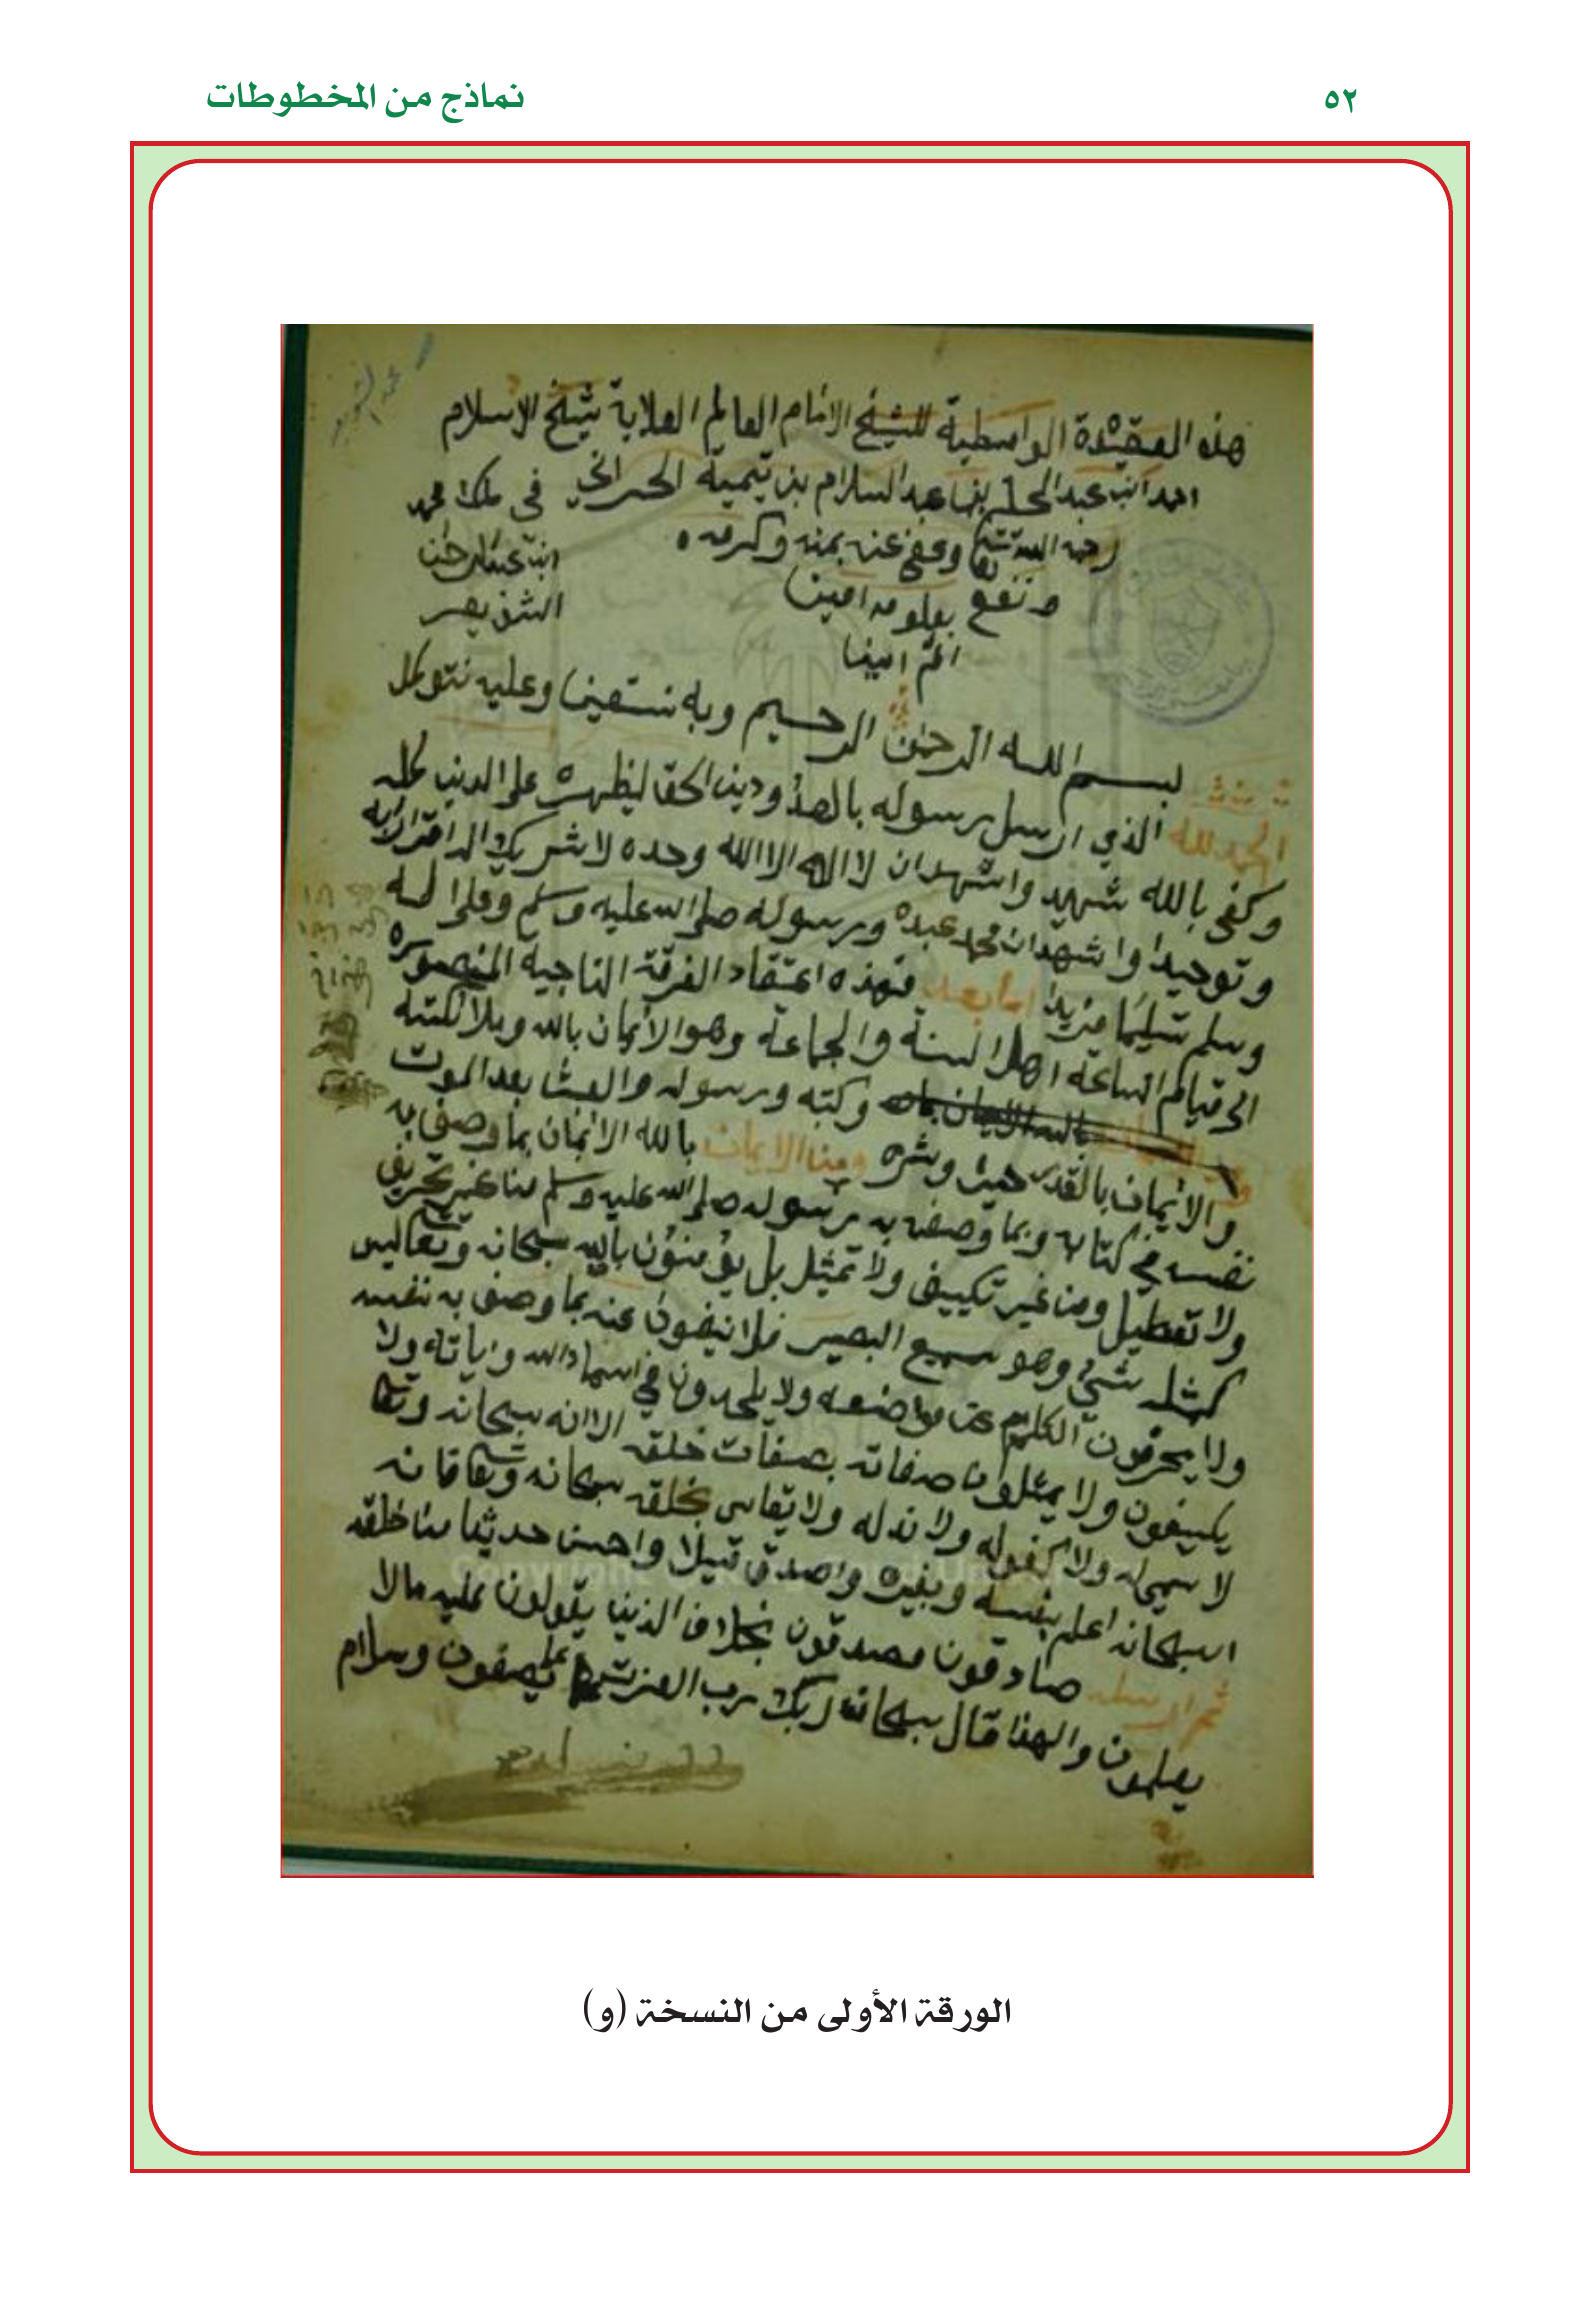 نماذج من المخطوطات
٥٢
هذه العقيدة الواسطية للشيخ الامام العالم العلامة شيخ الاسلام
احمد ابن عبد الحليم بن عبد السلام بن تيمية الحراني في ملك محمد
رحمه الله تعالى وعفى عنه بمنه وكرمه ابن عبد الرحمن
ونفع بعلومه امين
امينا
بسم الله الرحمن الرحيم وبه نستعين وعليه نتوكل
الحمد لله الذي ارسل رسوله بالهدى ودين الحق ليظهره على الدين كله
وكفى بالله شهيد واشهد ان لا اله الا الله وحده لا شريك له اقرارا به
وتوحيدا واشهد ان محمد عبده ورسوله صلى الله عليه وسلم وعلى اله
وسلم تسليما مزيدا اما بعد فهذه اعتقاد الفرقة الناجيه المنصوره
الى قيام الساعة اهل السنة والجماعة وهو الايمان بالله وملائكته
وكتبه ورسوله والبعث بعد الموت
والايمان بالقدر خيره وشره ومن الايمان بالله الايمان بما وصف به
نفسه في كتابه وبما وصفه به رسوله صلى الله عليه وسلم من غير تحريف
ولا تعطيل ومن غير تكييف ولا تمثيل بل يؤمنون بالله سبحانه وتعالى ليس
كمثله شيء وهو سميع البصير فلا ينفون عنه بما وصف به نفسه
ولا يحرفون الكلم عن مواضعه ولا يلحدون في اسماء الله واياته ولا
يكيفون ولا يمثلون صفاته بصفات خلقه لانه سبحانه وتعالى
لا سمي له ولا كفو له ولا ند له ولا يقاس بخلقه سبحانه وتعالى فانه
سبحانه اعلم بنفسه وبغيره واصدق قيلا واحسن حديثا من خلقه
ثم رسله صادقون مصدقون بخلاف الذين يقولون عليه مالا
يعلمون ولهذا قال سبحانه ربك رب العزة عما يصفون وسلام
الورقة الأولى من النسخة (و)